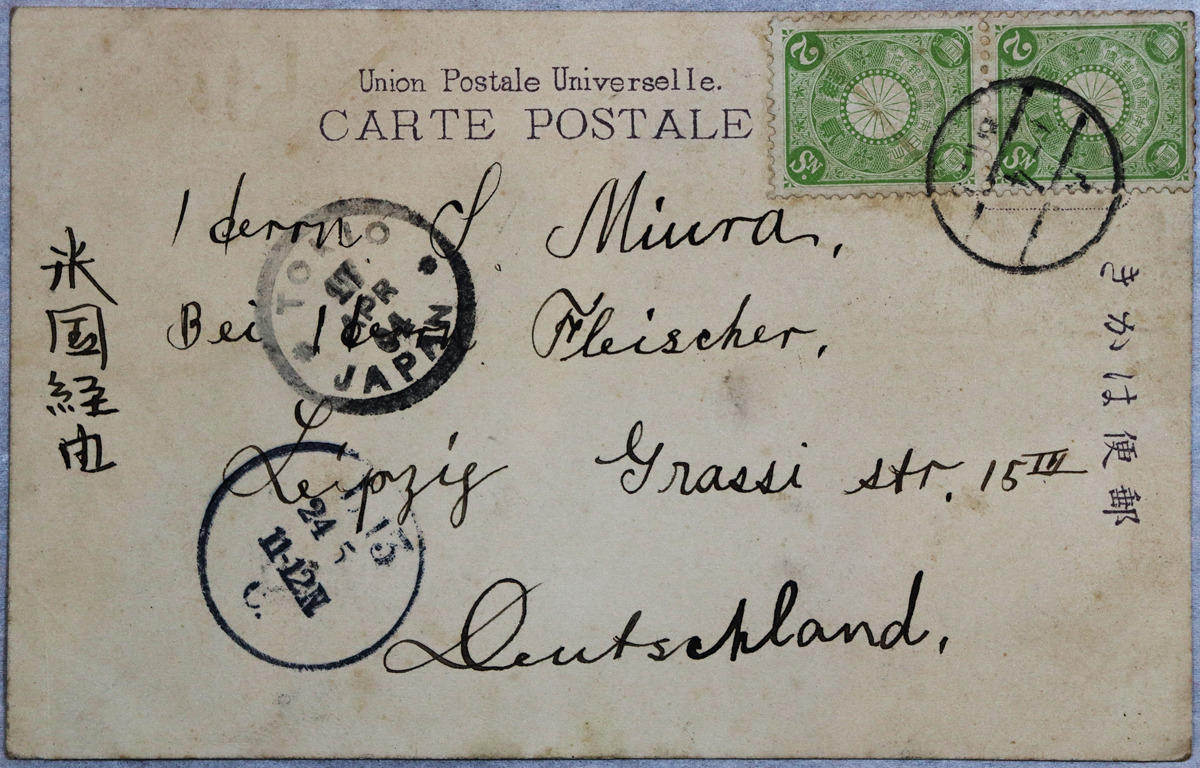 Union Postale Universelle.
CARTE POSTALE
2 2
Sn Sn
Herrn S. Miura,
Bei Herrn Fleischer,
Leipzig Grassi str. 15 III
Deutschland.
米国経由
きかは便郵
TOKIO
APR
JAPAN
24 5
11-12N
C.